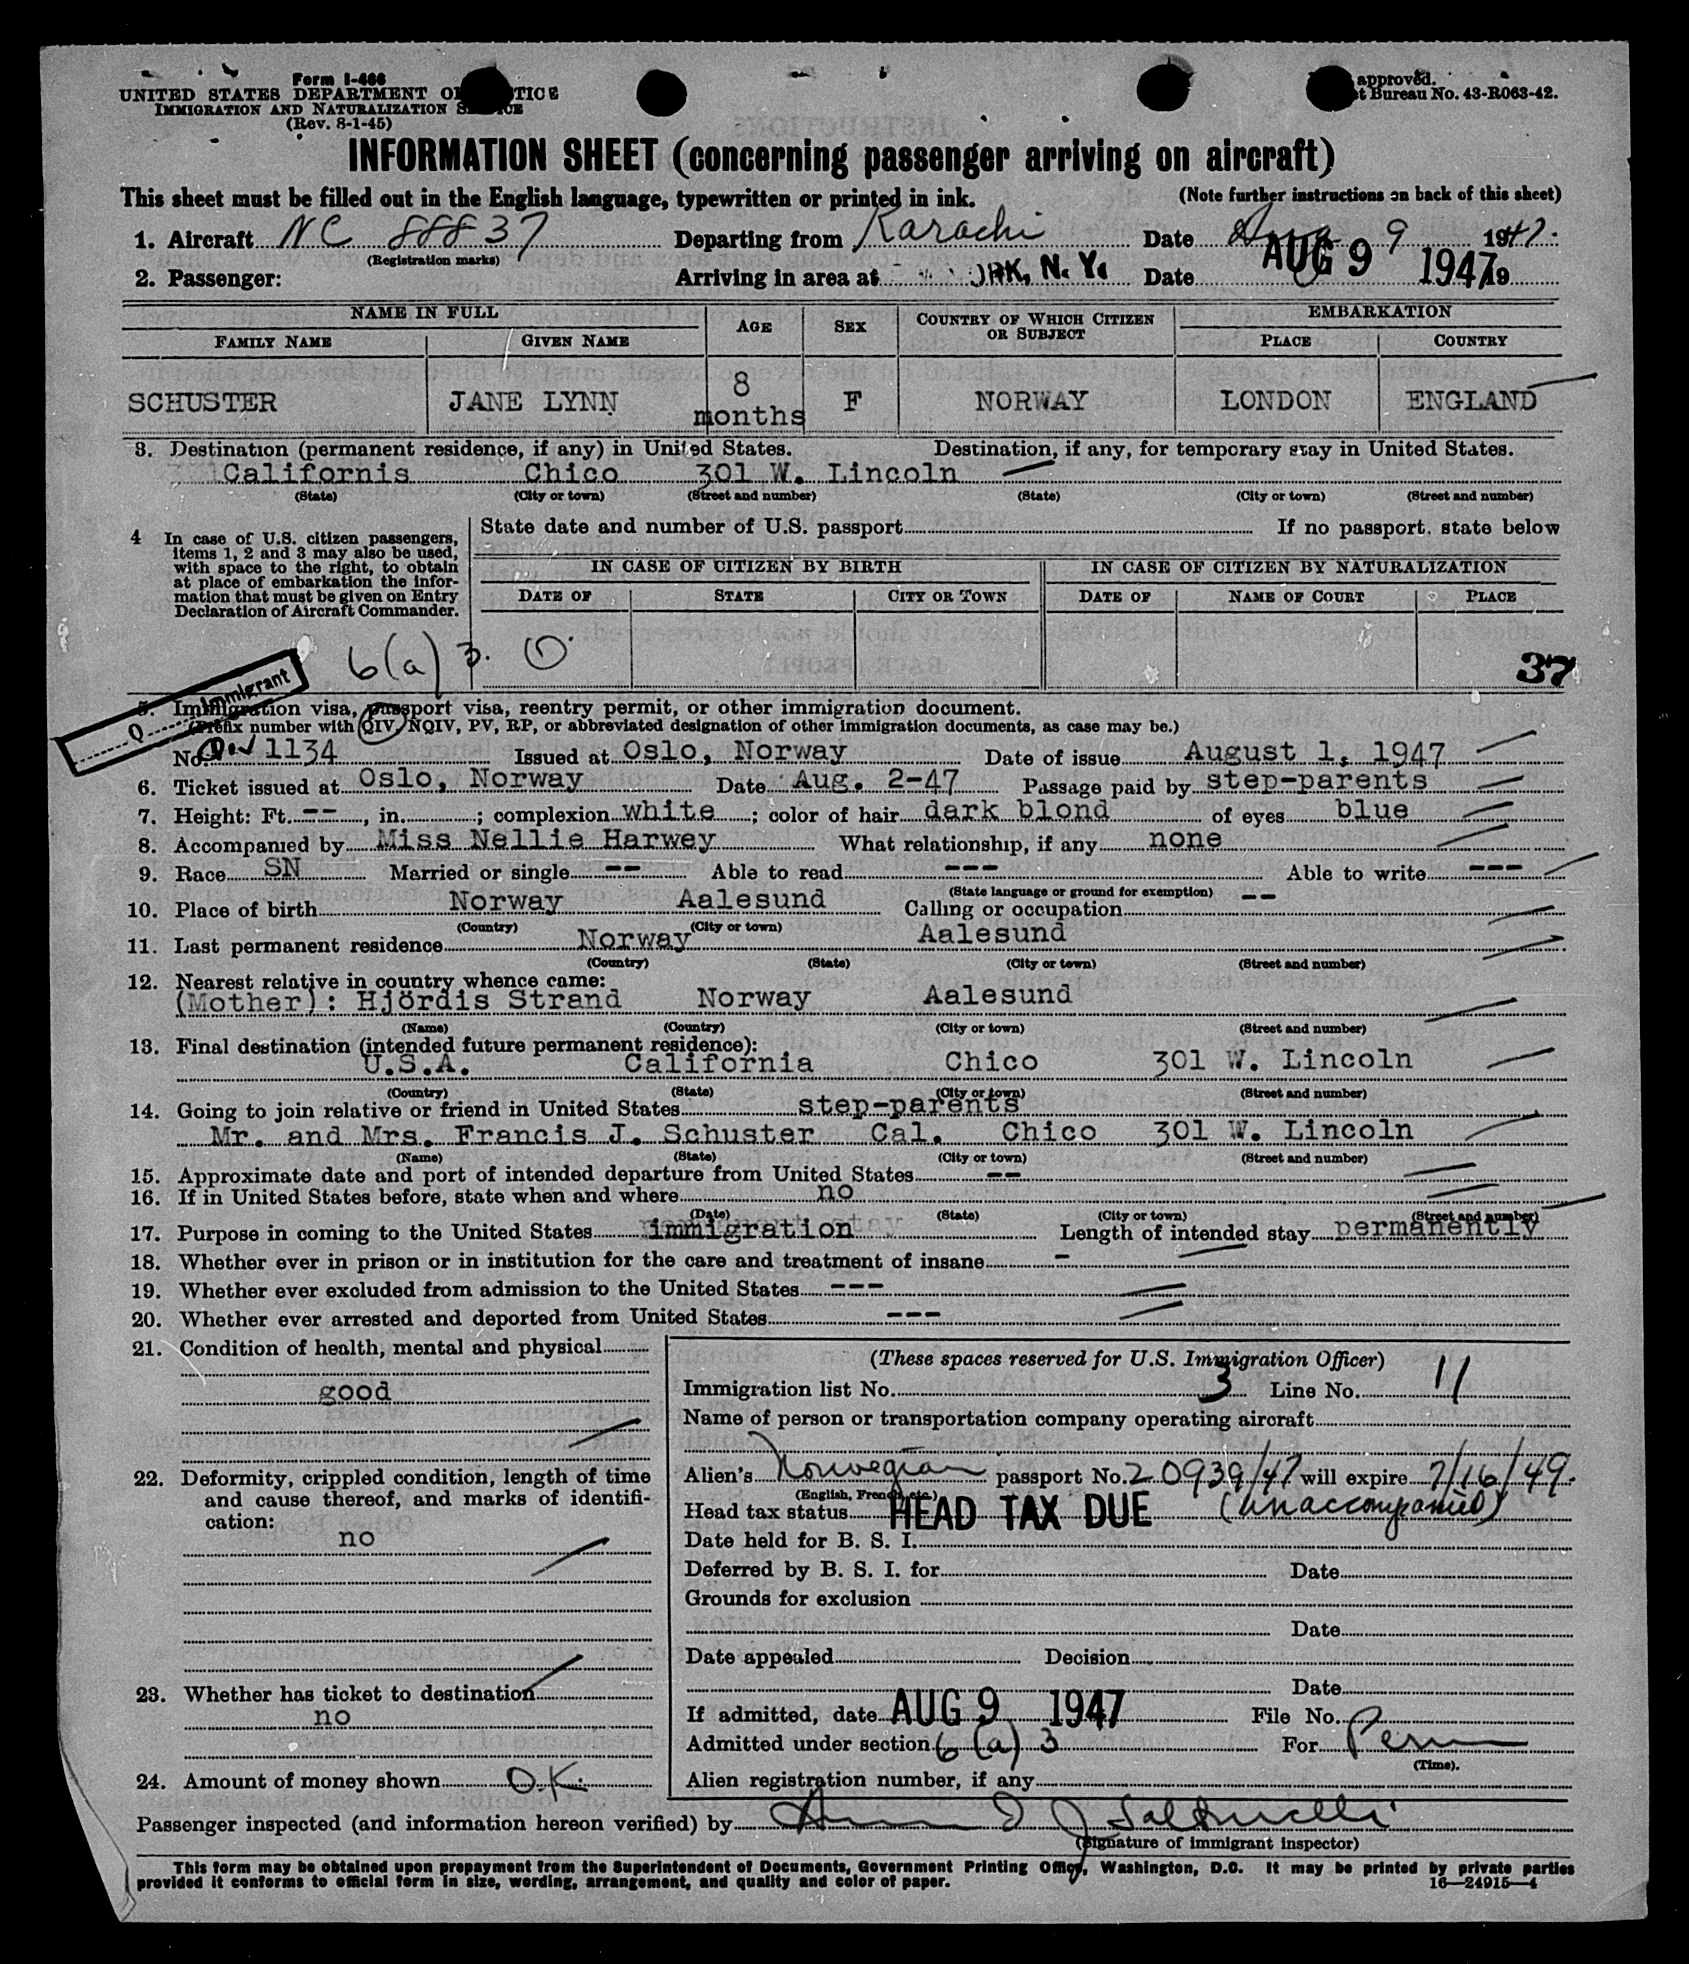 Form I-466
UNITED STATES DEPARTMENT OF JUSTICE
IMMIGRATION AND NATURALIZATION SERVICE
(Rev. 8-1-45)
approved.
t Bureau No. 43-R063-42.
INFORMATION SHEET (concerning passenger arriving on aircraft)
This sheet must be filled out in the English language, typewritten or printed in ink. (Note further instructions on back of this sheet)
1. Aircraft NC 88837 Departing from Karachi Date Aug 9 1947.
(Registration marks)
2. Passenger: Arriving in area at ORK, N. Y. Date AUG 9 1947 19
NAME IN FULL AGE SEX COUNTRY OF WHICH CITIZEN OR SUBJECT EMBARKATION
FAMILY NAME GIVEN NAME PLACE COUNTRY
SCHUSTER JANE LYNN 8 months F NORWAY LONDON ENGLAND
3. Destination (permanent residence, if any) in United States. Destination, if any, for temporary stay in United States.
Californis Chico 301 W. Lincoln
(State) (City or town) (Street and number) (State) (City or town) (Street and number)
4 In case of U.S. citizen passengers, items 1, 2 and 3 may also be used, with space to the right, to obtain at place of embarkation the information that must be given on Entry Declaration of Aircraft Commander.
State date and number of U.S. passport If no passport, state below
IN CASE OF CITIZEN BY BIRTH IN CASE OF CITIZEN BY NATURALIZATION
DATE OF STATE CITY OR TOWN DATE OF NAME OF COURT PLACE
6(a) 3. 37
Q Immigrant
5. Immigration visa, passport visa, reentry permit, or other immigration document.
(Prefix number with QIV, NQIV, PV, RP, or abbreviated designation of other immigration documents, as case may be.)
No. QIV 1134 Issued at Oslo, Norway Date of issue August 1, 1947
6. Ticket issued at Oslo, Norway Date Aug. 2-47 Passage paid by step-parents
7. Height: Ft. --, in. ; complexion white ; color of hair dark blond of eyes blue
8. Accompanied by Miss Nellie Harwey What relationship, if any none
9. Race SN Married or single -- Able to read --- Able to write ---
(State language or ground for exemption)
10. Place of birth Norway Aalesund Calling or occupation --
(Country) (City or town)
11. Last permanent residence Norway Aalesund
(Country) (State) (City or town) (Street and number)
12. Nearest relative in country whence came:
(Mother): Hjördis Strand Norway Aalesund
(Name) (Country) (City or town) (Street and number)
13. Final destination (intended future permanent residence):
U.S.A. California Chico 301 W. Lincoln
(Country) (State) (City or town) (Street and number)
14. Going to join relative or friend in United States step-parents
Mr. and Mrs. Francis J. Schuster Cal. Chico 301 W. Lincoln
(Name) (State) (City or town) (Street and number)
15. Approximate date and port of intended departure from United States --
16. If in United States before, state when and where no
(Date) (State) (City or town) (Street and number)
17. Purpose in coming to the United States immigration Length of intended stay permanently
18. Whether ever in prison or in institution for the care and treatment of insane -
19. Whether ever excluded from admission to the United States ---
20. Whether ever arrested and deported from United States ---
21. Condition of health, mental and physical
good
22. Deformity, crippled condition, length of time and cause thereof, and marks of identification:
no
23. Whether has ticket to destination
no
24. Amount of money shown O.K.
(These spaces reserved for U.S. Immigration Officer)
Immigration list No. 3 Line No. 11
Name of person or transportation company operating aircraft
Alien's Norwegian passport No. 20939/47 will expire 7/16/49.
(English, French, etc.)
Head tax status HEAD TAX DUE (unaccompanied)
Date held for B. S. I.
Deferred by B. S. I. for Date
Grounds for exclusion
Date
Date appealed Decision
Date
If admitted, date AUG 9 1947 File No.
Admitted under section 6(a) 3 For Perm
(Time).
Alien registration number, if any
Passenger inspected (and information hereon verified) by
(Signature of immigrant inspector)
This form may be obtained upon prepayment from the Superintendent of Documents, Government Printing Office, Washington, D.C. It may be printed by private parties
provided it conforms to official form in size, wording, arrangement, and quality and color of paper. 16—24915-4